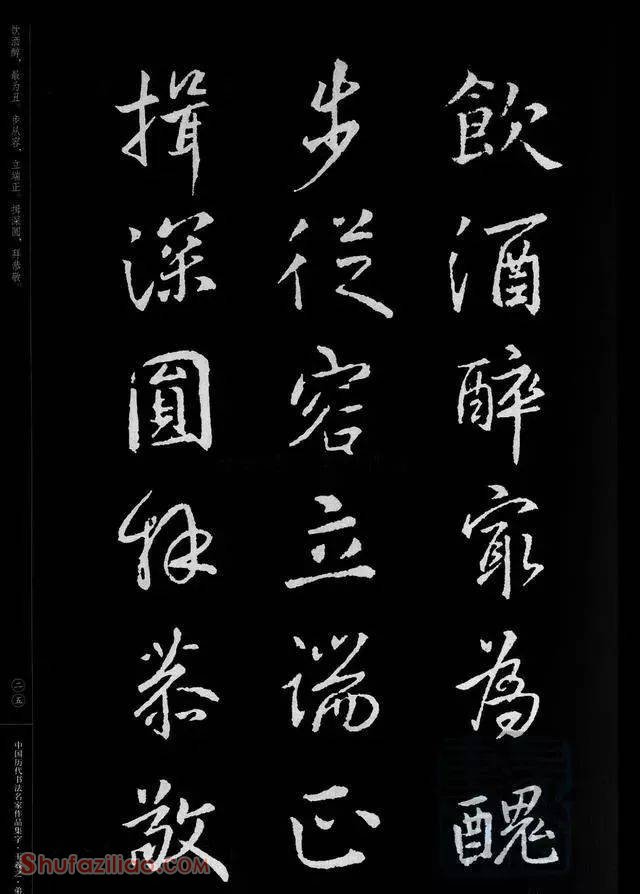 飲酒醉寂為醜
步從容立端正
揖深圓拜恭敬
饮酒醉，最为丑。步从容，立端正。揖深圆，拜恭敬。
二五
中国历代书法名家作品集字·王羲之·弟
Shufaziliao.com